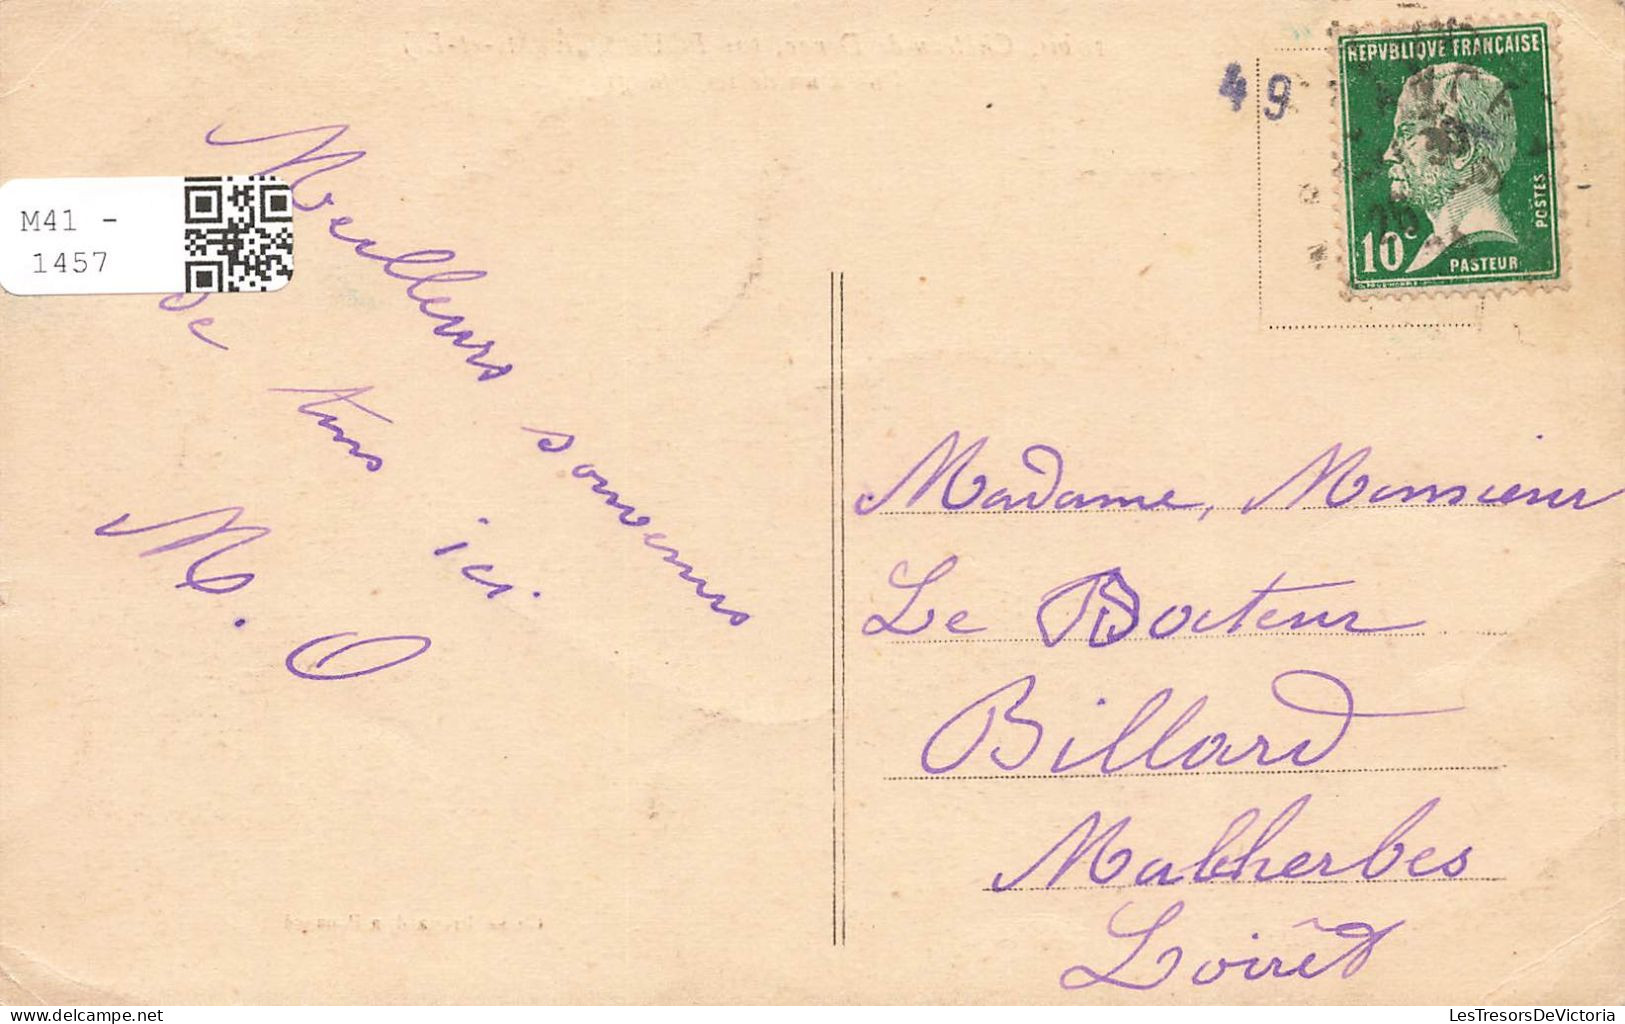 M41 -
1457
Meilleurs souvenirs
de tous ici.
M. O
49
REPVBLIQVE FRANÇAISE
10c
PASTEUR
POSTES
Madame, Monsieur
Le Docteur
Billard
Malherbes
Loirêt
LesTresorsDeVictoria